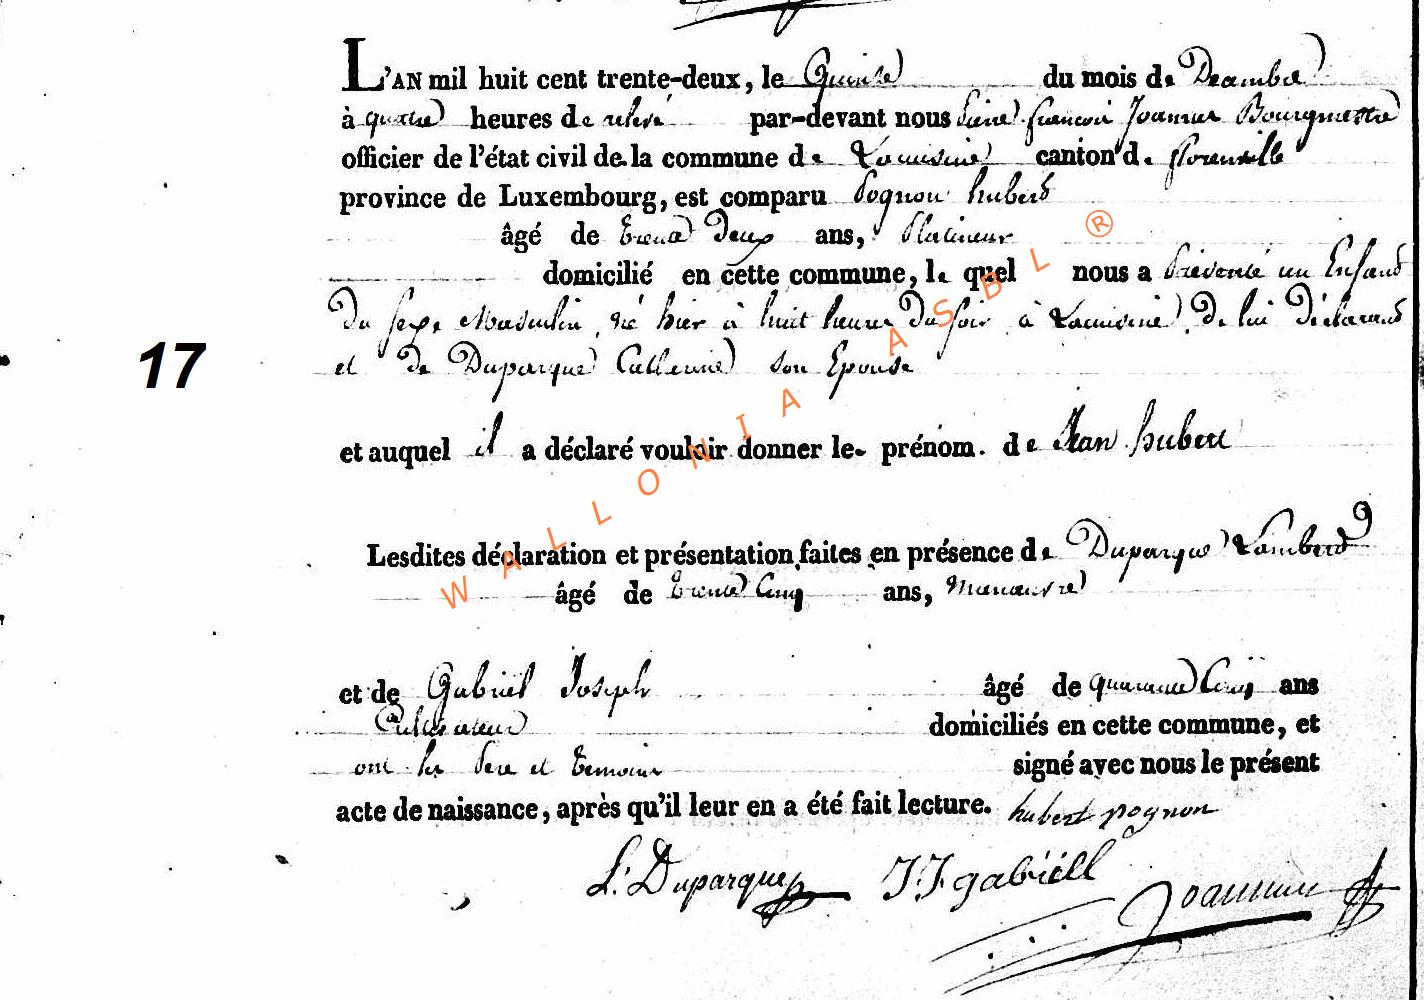 L'AN mil huit cent trente-deux, le Quinze du mois de Decembre
à quatre heures de relevé par-devant nous Pierre françois Joannes Bourgmestre
officier de l'état civil de la commune de Lacuisine canton de florenville
province de Luxembourg, est comparu Pognon hubert
âgé de trente Deux ans, Platineur
domicilié en cette commune, le quel nous a présenté un Enfant
Du sexe Masculin, né hier à huit heures Du soir à Lacuisine, De lui Déclarant
17
et de Duparque Catherine son Epouse
et auquel il a déclaré vouloir donner le prénom de Jean hubert
Lesdites déclaration et présentation faites en présence de Duparque Lambert
âgé de trente Cinq ans, Manoeuvre
et de Gabriël Joseph âgé de quarante Cinq ans
Cultivateur domiciliés en cette commune, et
ont les Père et temoins signé avec nous le présent
acte de naissance, après qu'il leur en a été fait lecture. hubert pognon
L. Duparque J J gabriëll Joannes
WALLONIA ASBL ®